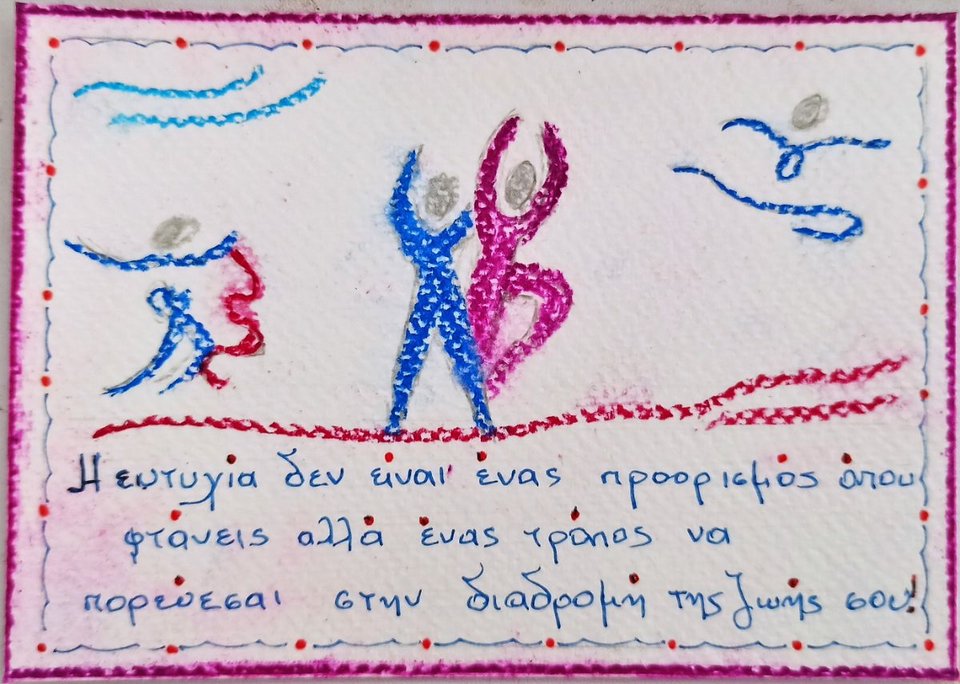 Η ευτυχία δεν είναι ένας προορισμός όπου
φτάνεις αλλά ένας τρόπος να
πορεύεσαι στην διαδρομή της ζωής σου!